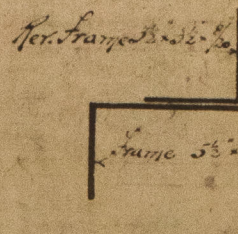 Rev. Frame 3½" × 3½" ×
Frame 5½"